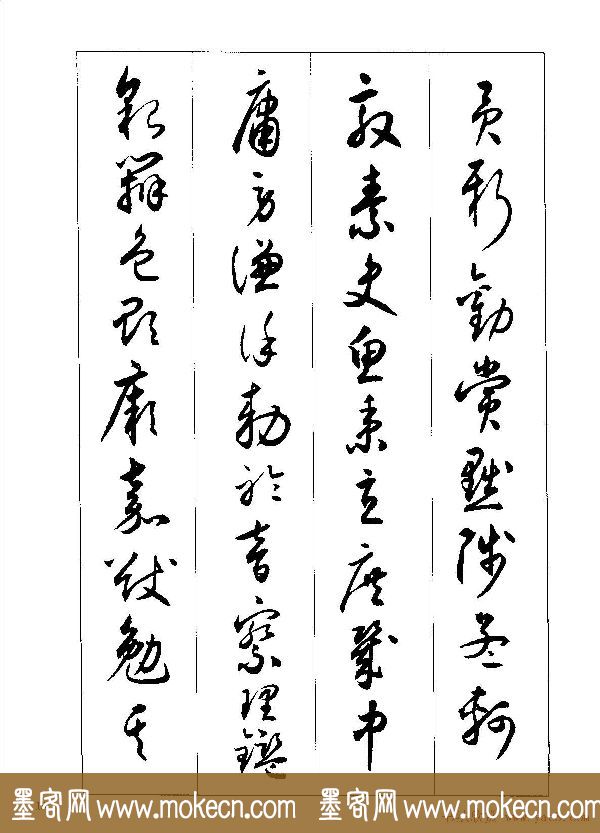 貢新勸賞黜陟孟軻
敦素史魚秉直庶幾中
庸勞謙謹勅聆音察理鑑
貌辨色貽厥嘉猷勉其
墨客网 www.mokecn.com 墨客网 www.mokecn.com